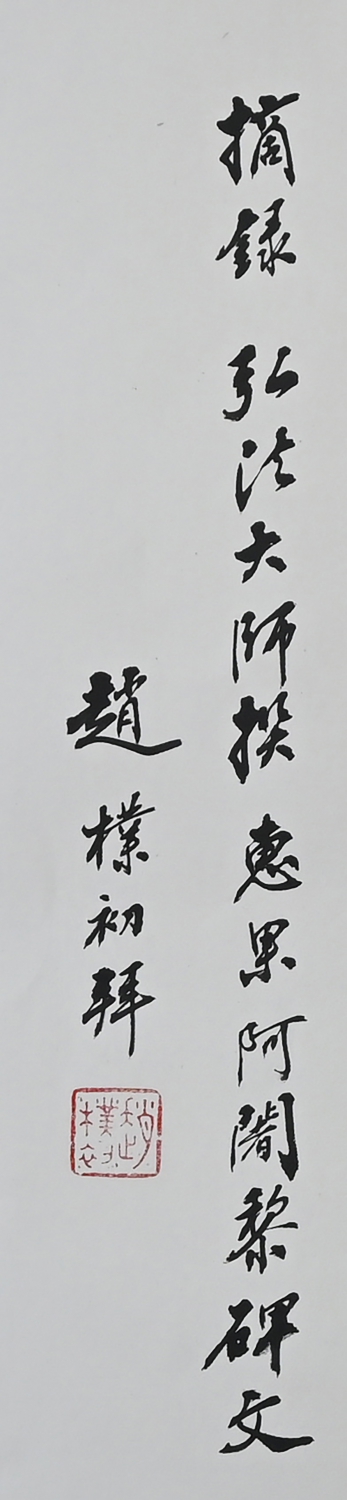 摘録 弘法大師撰 惠果阿闍黎碑文
趙樸初拜
趙樸初